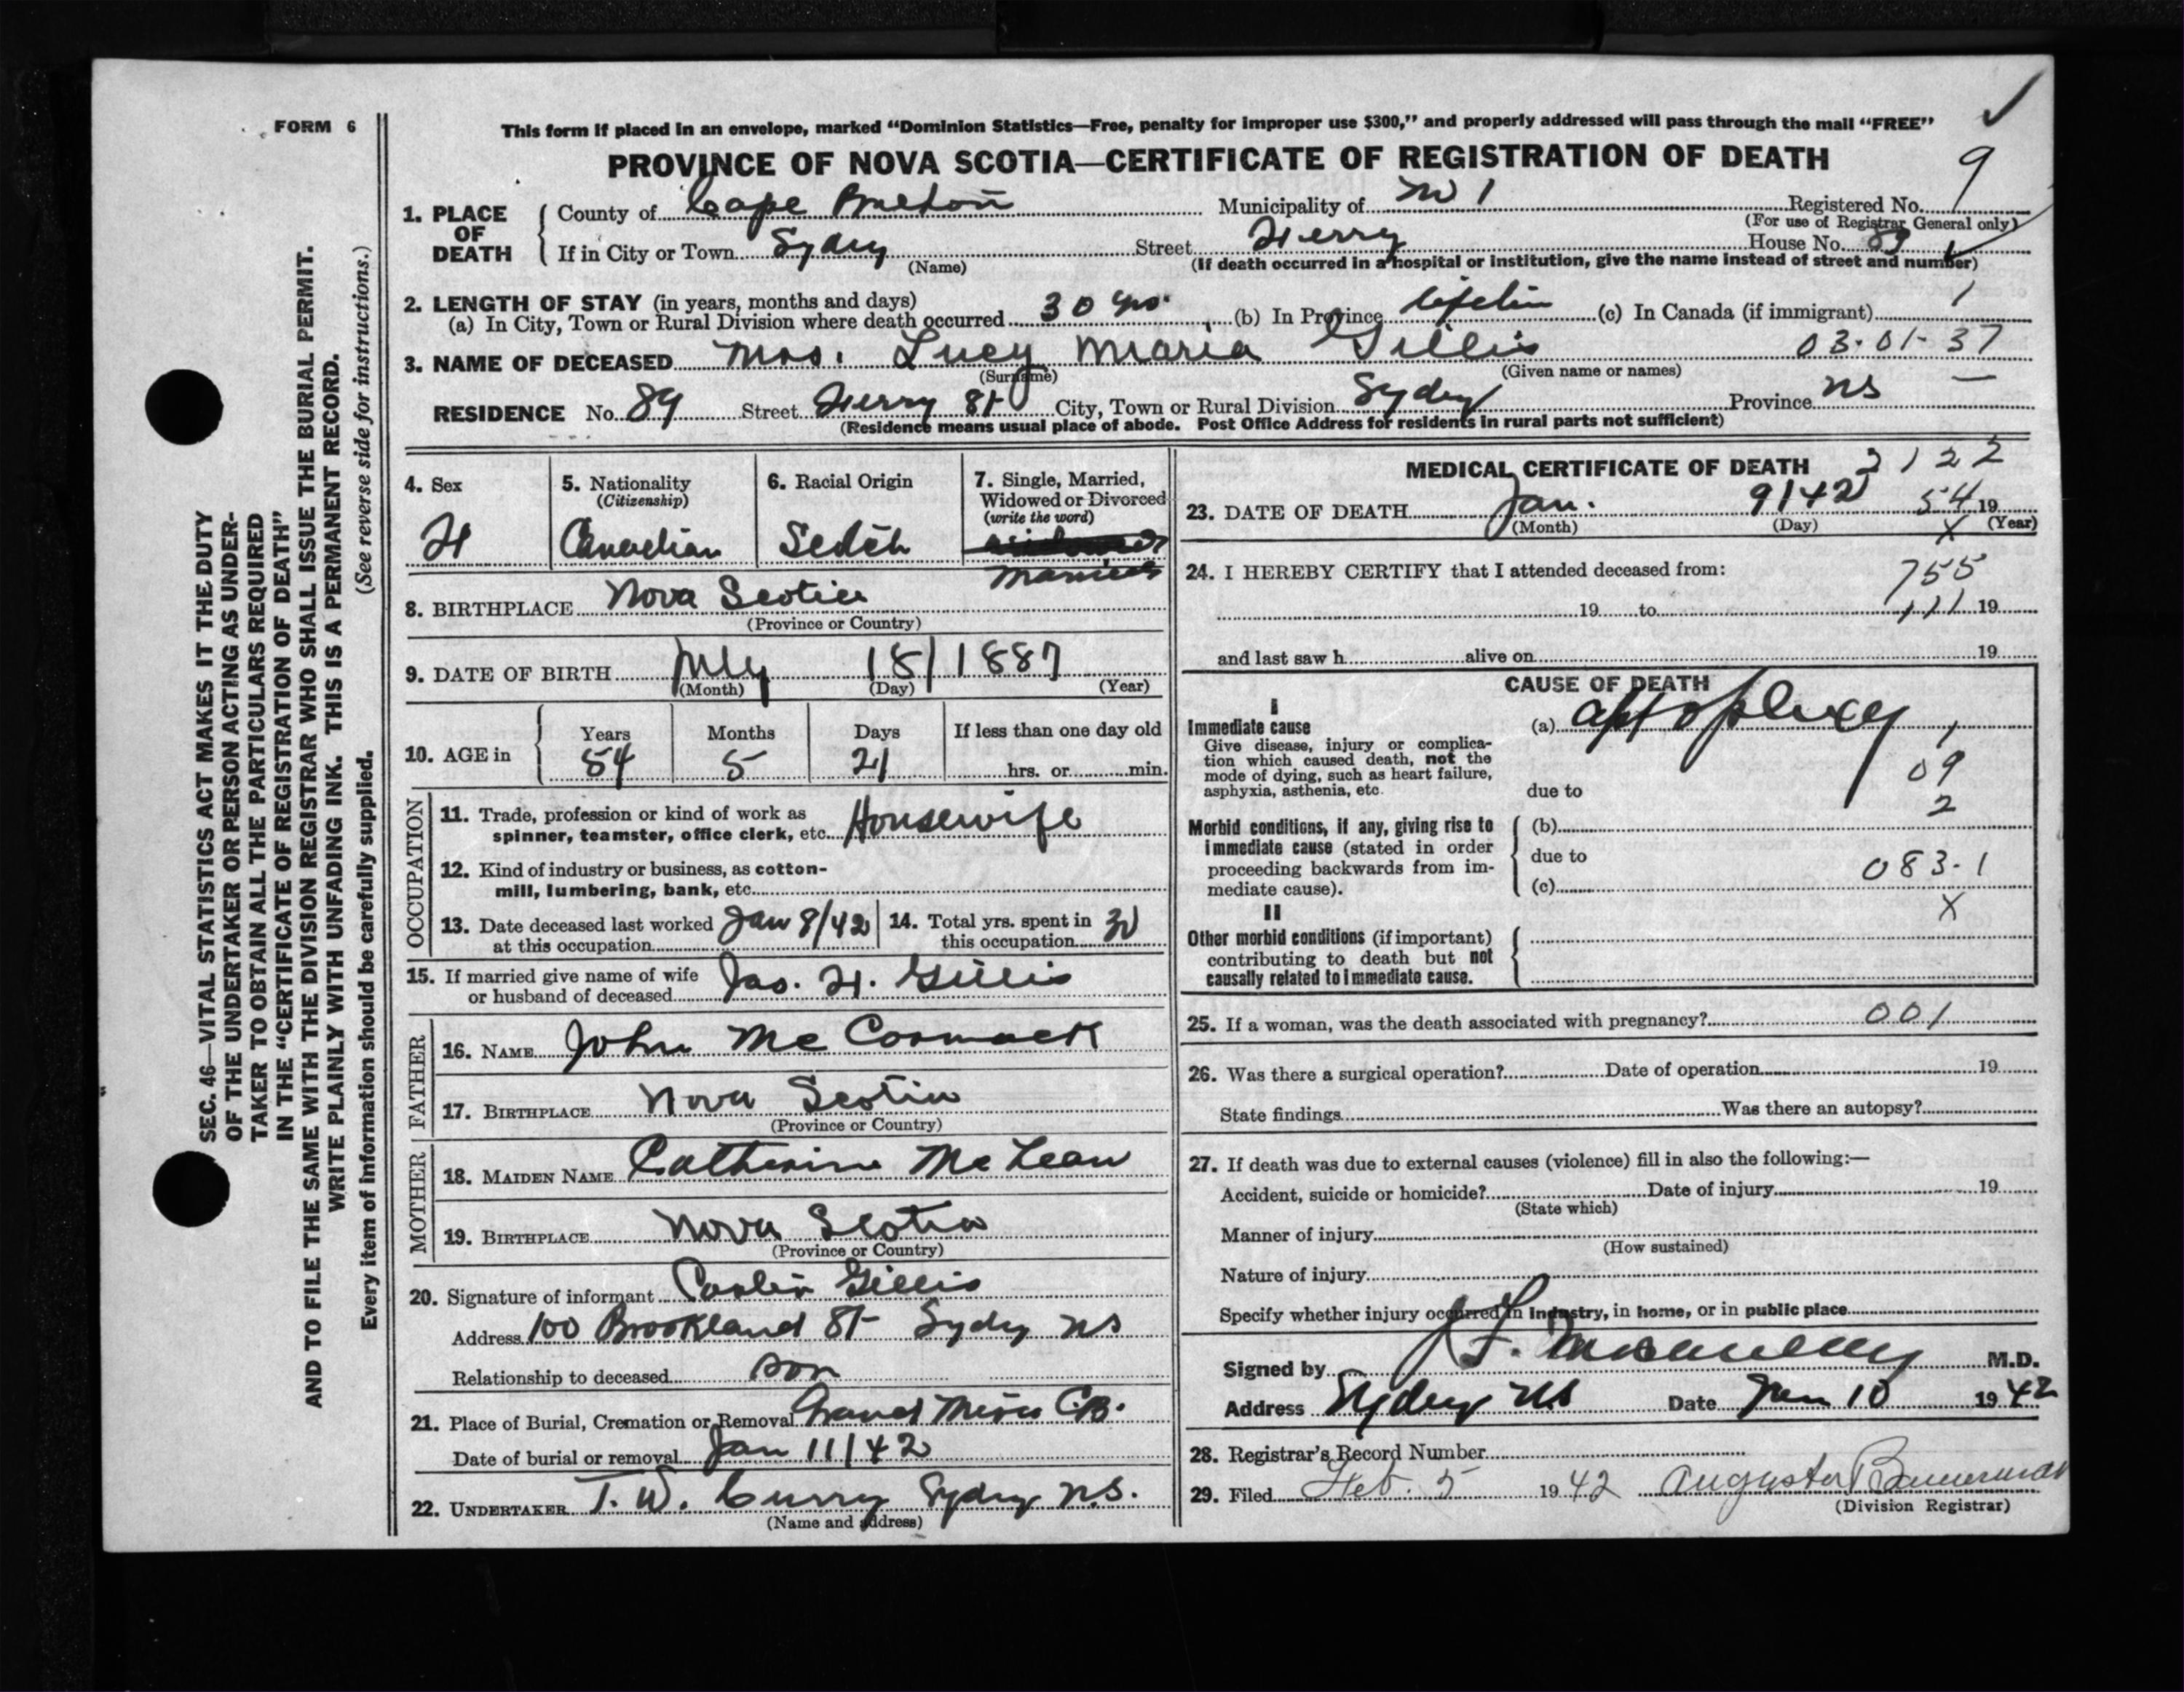 FORM 6
This form if placed in an envelope, marked “Dominion Statistics—Free, penalty for improper use $300,” and properly addressed will pass through the mail “FREE”
PROVINCE OF NOVA SCOTIA—CERTIFICATE OF REGISTRATION OF DEATH
9
1. PLACE OF DEATH
County of Cape Breton Municipality of Registered No.
(For use of Registrar General only)
If in City or Town Sydney Street Ferry House No. 89
(Name) (If death occurred in a hospital or institution, give the name instead of street and number)
2. LENGTH OF STAY (in years, months and days)
(a) In City, Town or Rural Division where death occurred 30 yrs. (b) In Province (c) In Canada (if immigrant) 1
3. NAME OF DECEASED Mrs. Lucy Maria Gillis 03-01-37
(Surname) (Given name or names)
RESIDENCE No. 89 Street Ferry St City, Town or Rural Division Sydney Province NS
(Residence means usual place of abode. Post Office Address for residents in rural parts not sufficient)
4. Sex F
5. Nationality (Citizenship) Canadian
6. Racial Origin Scotch
7. Single, Married, Widowed or Divorced (write the word)
Married
8. BIRTHPLACE Nova Scotia
(Province or Country)
9. DATE OF BIRTH July 18 / 1887
(Month) (Day) (Year)
10. AGE in Years 54 Months 5 Days 21 If less than one day old hrs. or min.
OCCUPATION
11. Trade, profession or kind of work as spinner, teamster, office clerk, etc. Housewife
12. Kind of industry or business, as cotton-mill, lumbering, bank, etc.
13. Date deceased last worked at this occupation Jan 8/42
14. Total yrs. spent in this occupation
15. If married give name of wife or husband of deceased Jas. H. Gillis
FATHER
16. NAME John McCormack
17. BIRTHPLACE Nova Scotia
(Province or Country)
MOTHER
18. MAIDEN NAME Catherine McLean
19. BIRTHPLACE Nova Scotia
(Province or Country)
20. Signature of informant Gillis
Address 100 Brookland St Sydney NS
Relationship to deceased son
21. Place of Burial, Cremation or Removal Grand Mira C.B.
Date of burial or removal Jan 11/42
22. UNDERTAKER T. W. Curry Sydney N.S.
(Name and address)
MEDICAL CERTIFICATE OF DEATH 2122
23. DATE OF DEATH Jan. 9/42 54 19
(Month) (Day) X (Year)
24. I HEREBY CERTIFY that I attended deceased from: 755
19 to 111 19
and last saw h alive on 19
CAUSE OF DEATH
I
Immediate cause (a) appoplexy 1
Give disease, injury or complication which caused death, not the mode of dying, such as heart failure, asphyxia, asthenia, etc.
due to 09
2
Morbid conditions, if any, giving rise to immediate cause (stated in order proceeding backwards from immediate cause).
(b)
due to
(c) 083-1
X
II
Other morbid conditions (if important) contributing to death but not causally related to immediate cause.
25. If a woman, was the death associated with pregnancy? 001
26. Was there a surgical operation? Date of operation 19
State findings Was there an autopsy?
27. If death was due to external causes (violence) fill in also the following:—
Accident, suicide or homicide? Date of injury 19
(State which)
Manner of injury
(How sustained)
Nature of injury
Specify whether injury occurred in Industry, in home, or in public place
Signed by M.D.
Address Sydney NS Date Jan 10 1942
28. Registrar’s Record Number
29. Filed Feb. 5 1942
(Division Registrar)
SEC. 46—VITAL STATISTICS ACT MAKES IT THE DUTY
OF THE UNDERTAKER OR PERSON ACTING AS UNDER-
TAKER TO OBTAIN ALL THE PARTICULARS REQUIRED
IN THE “CERTIFICATE OF REGISTRATION OF DEATH”
AND TO FILE THE SAME WITH THE DIVISION REGISTRAR WHO SHALL ISSUE THE BURIAL PERMIT.
WRITE PLAINLY WITH UNFADING INK. THIS IS A PERMANENT RECORD.
Every item of information should be carefully supplied. (See reverse side for instructions.)